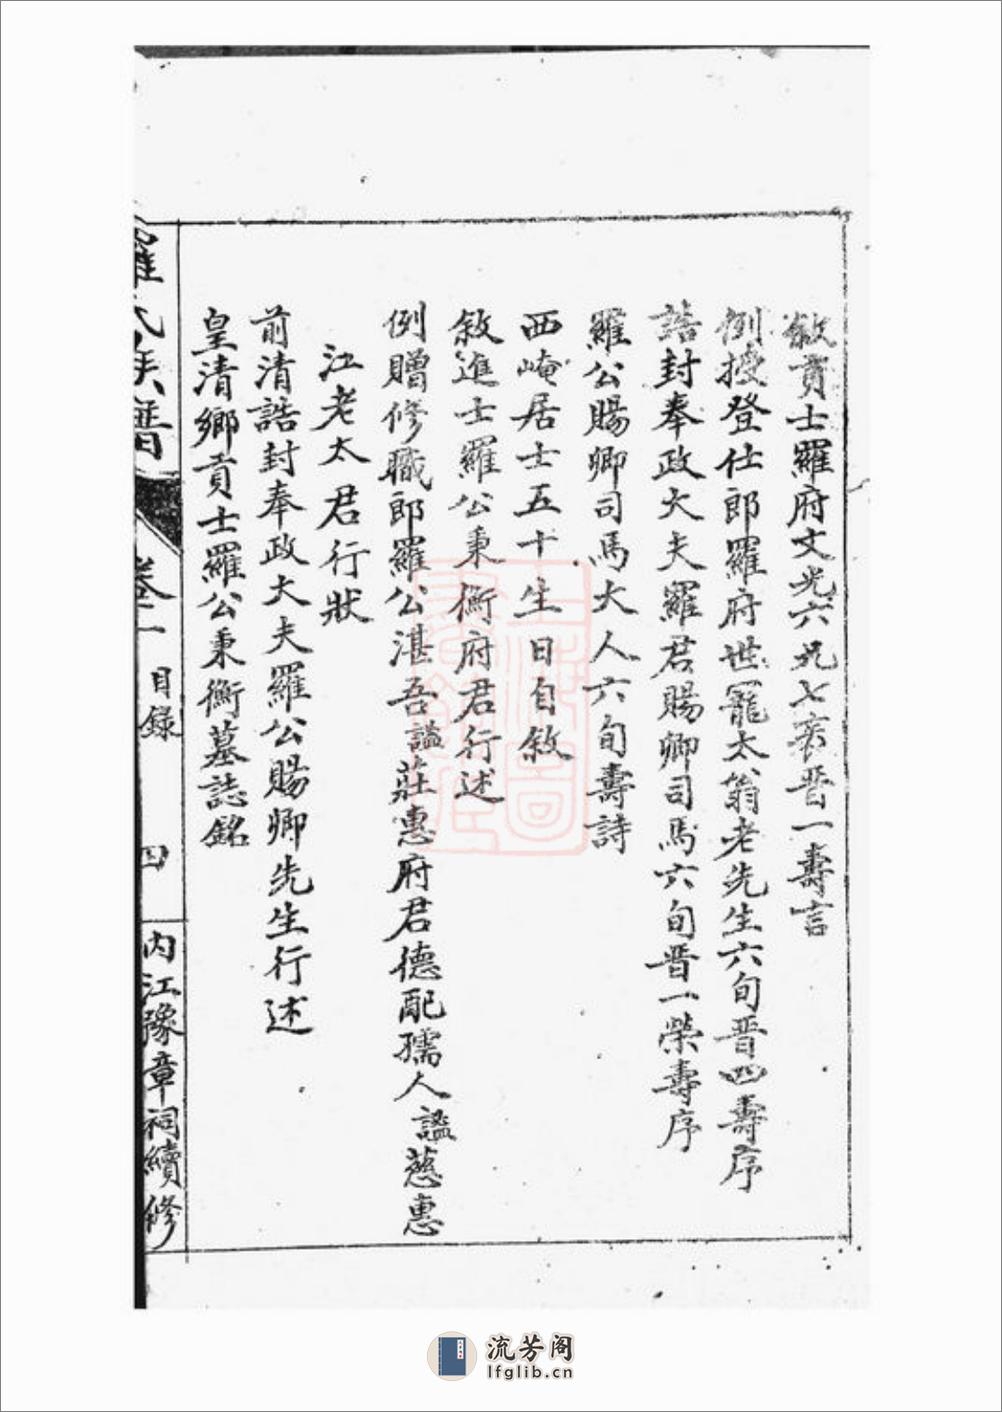 敘貢士羅府文光六兄七袠晋一壽言
例授登仕郎羅府世寵太翁老先生六旬晋四壽序
誥封奉政大夫羅君賜卿司馬六旬晋一榮壽序
羅公賜卿司馬大人六旬壽詩
西崦居士五十生日自敘
敘進士羅公秉衡府君行述
例贈修職郎羅公湛吾謚莊惠府君德配孺人謚慈惠
江老太君行狀
前清誥封奉政大夫羅公賜卿先生行述
皇清鄉貢士羅公秉衡墓誌銘
羅氏族譜
卷一 目錄 四
內江豫章祠續修
流芳阁
lfglib.cn